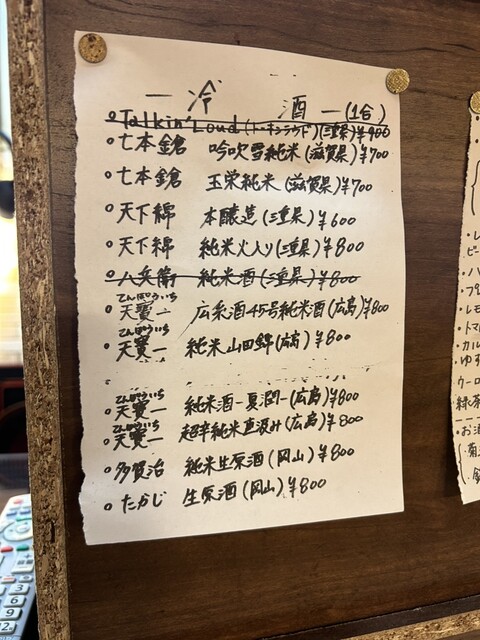 一 冷 酒 一 (1合)
Talkin' Loud (トーキンラウド)(三重県)¥900
七本鎗 吟吹雪純米 (滋賀県)¥700
七本鎗 玉栄純米 (滋賀県)¥700
天下錦 本醸造 (三重県)¥600
天下錦 純米火入り (三重県)¥800
八兵衛 純米酒 (三重県)¥800
てんぽういち
天寶一 広系酒45号純米酒 (広島)¥800
てんぽういち
天寶一 純米山田錦 (広島)¥800
てんぽういち
天寶一 純米酒 (広島)¥800
てんぽういち
天寶一 超辛純米直汲み (広島)¥800
多賀治 純米生原酒 (岡山)¥800
たかじ 生原酒 (岡山)¥800
・レ
ビー
・ハ
・レモ
・トマ
・カル
・ゆず
・ウーロ
緑茶
・お酒